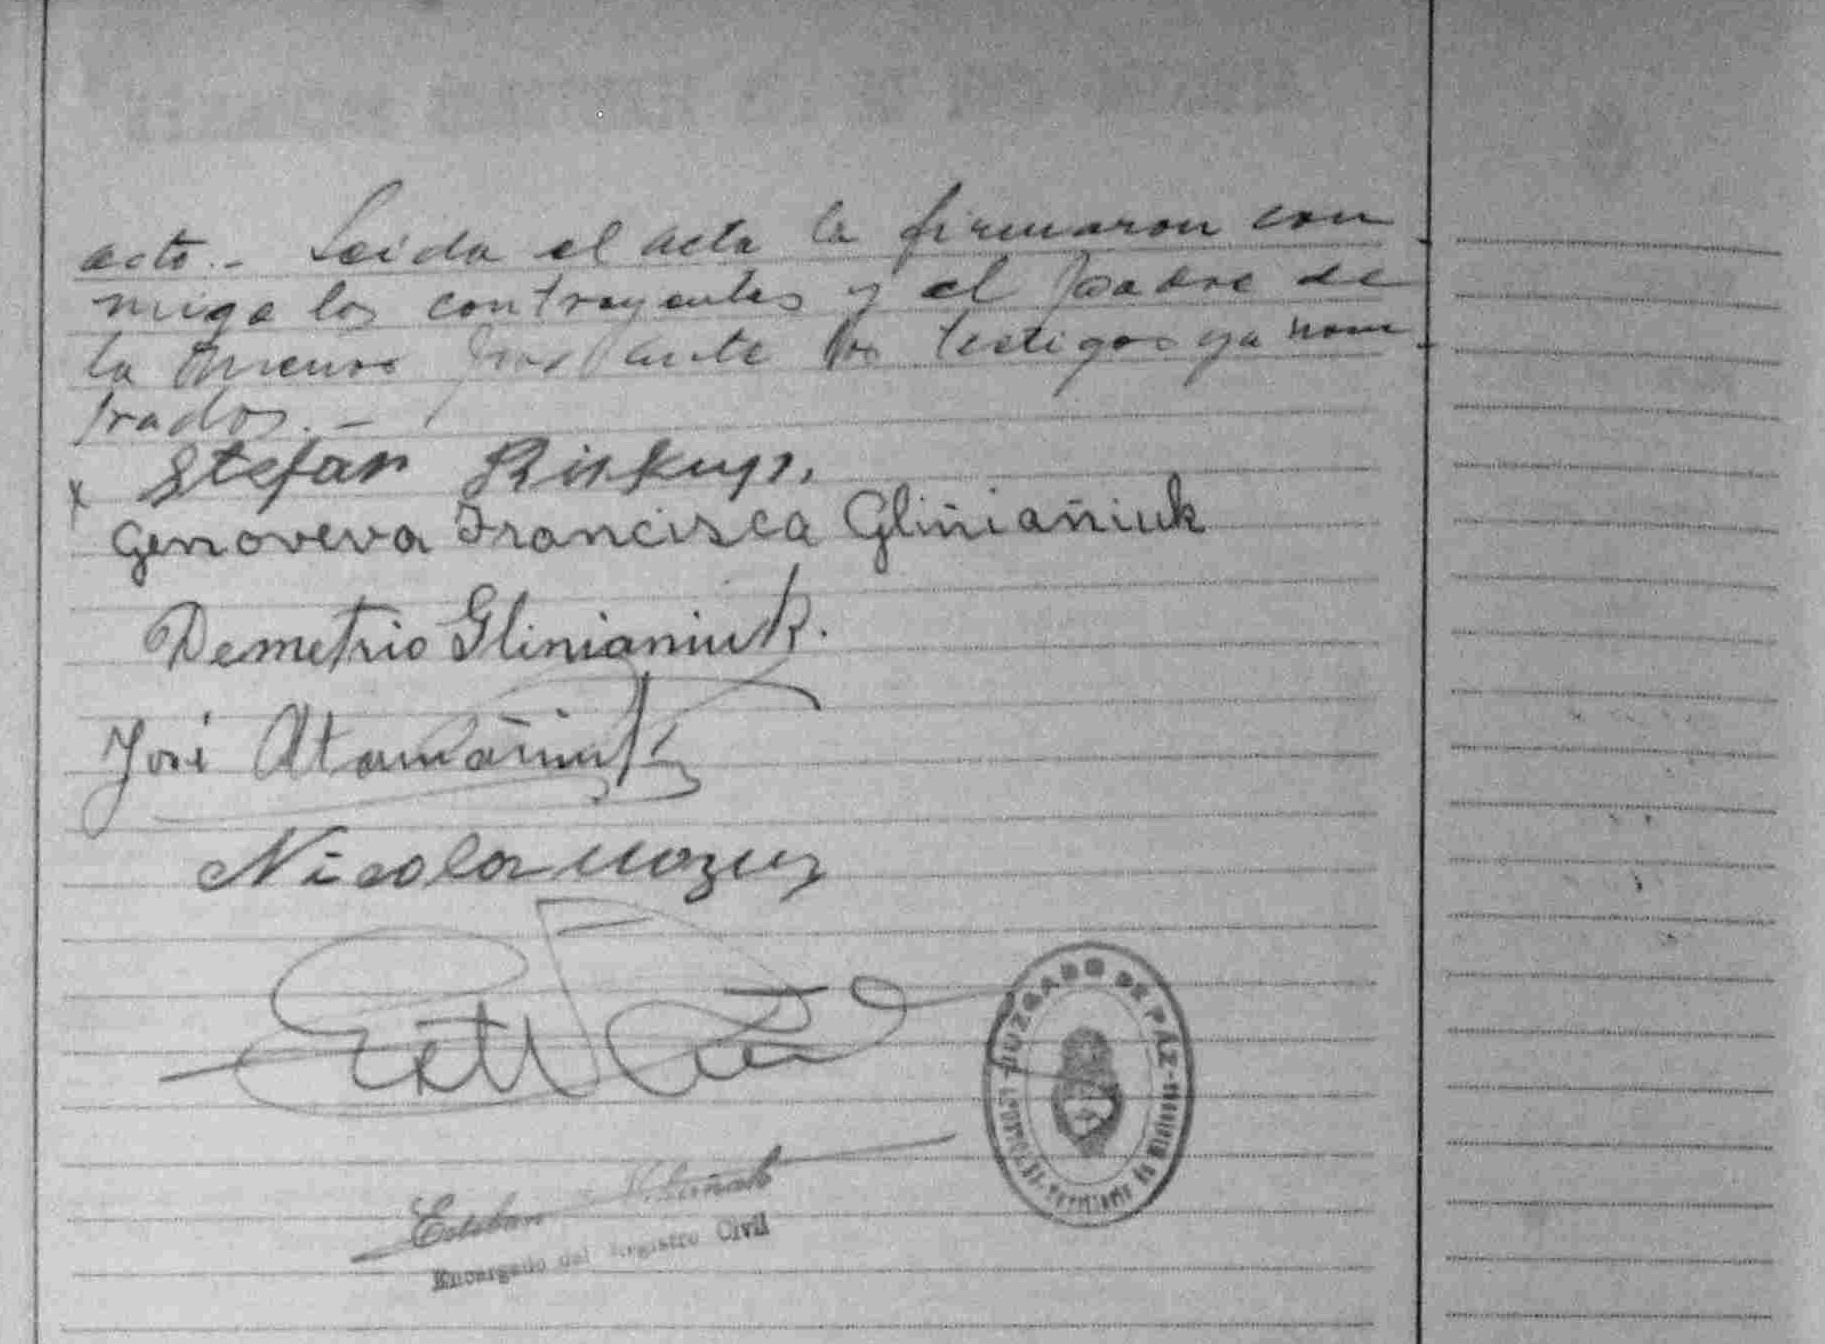 acto.- Leida el acta la firmaron con
migo los contrayentes y el padre de
la menor por ante los testigos ya nom
brados.-
x Stefan
Genoveva Francisca Gliñiañiuk
Demetrio Glinianiuk.
José Atamañiuk
Nicola
JUZGADO DE PAZ
Territorio de Misiones
Esteban
Encargado del Registro Civil